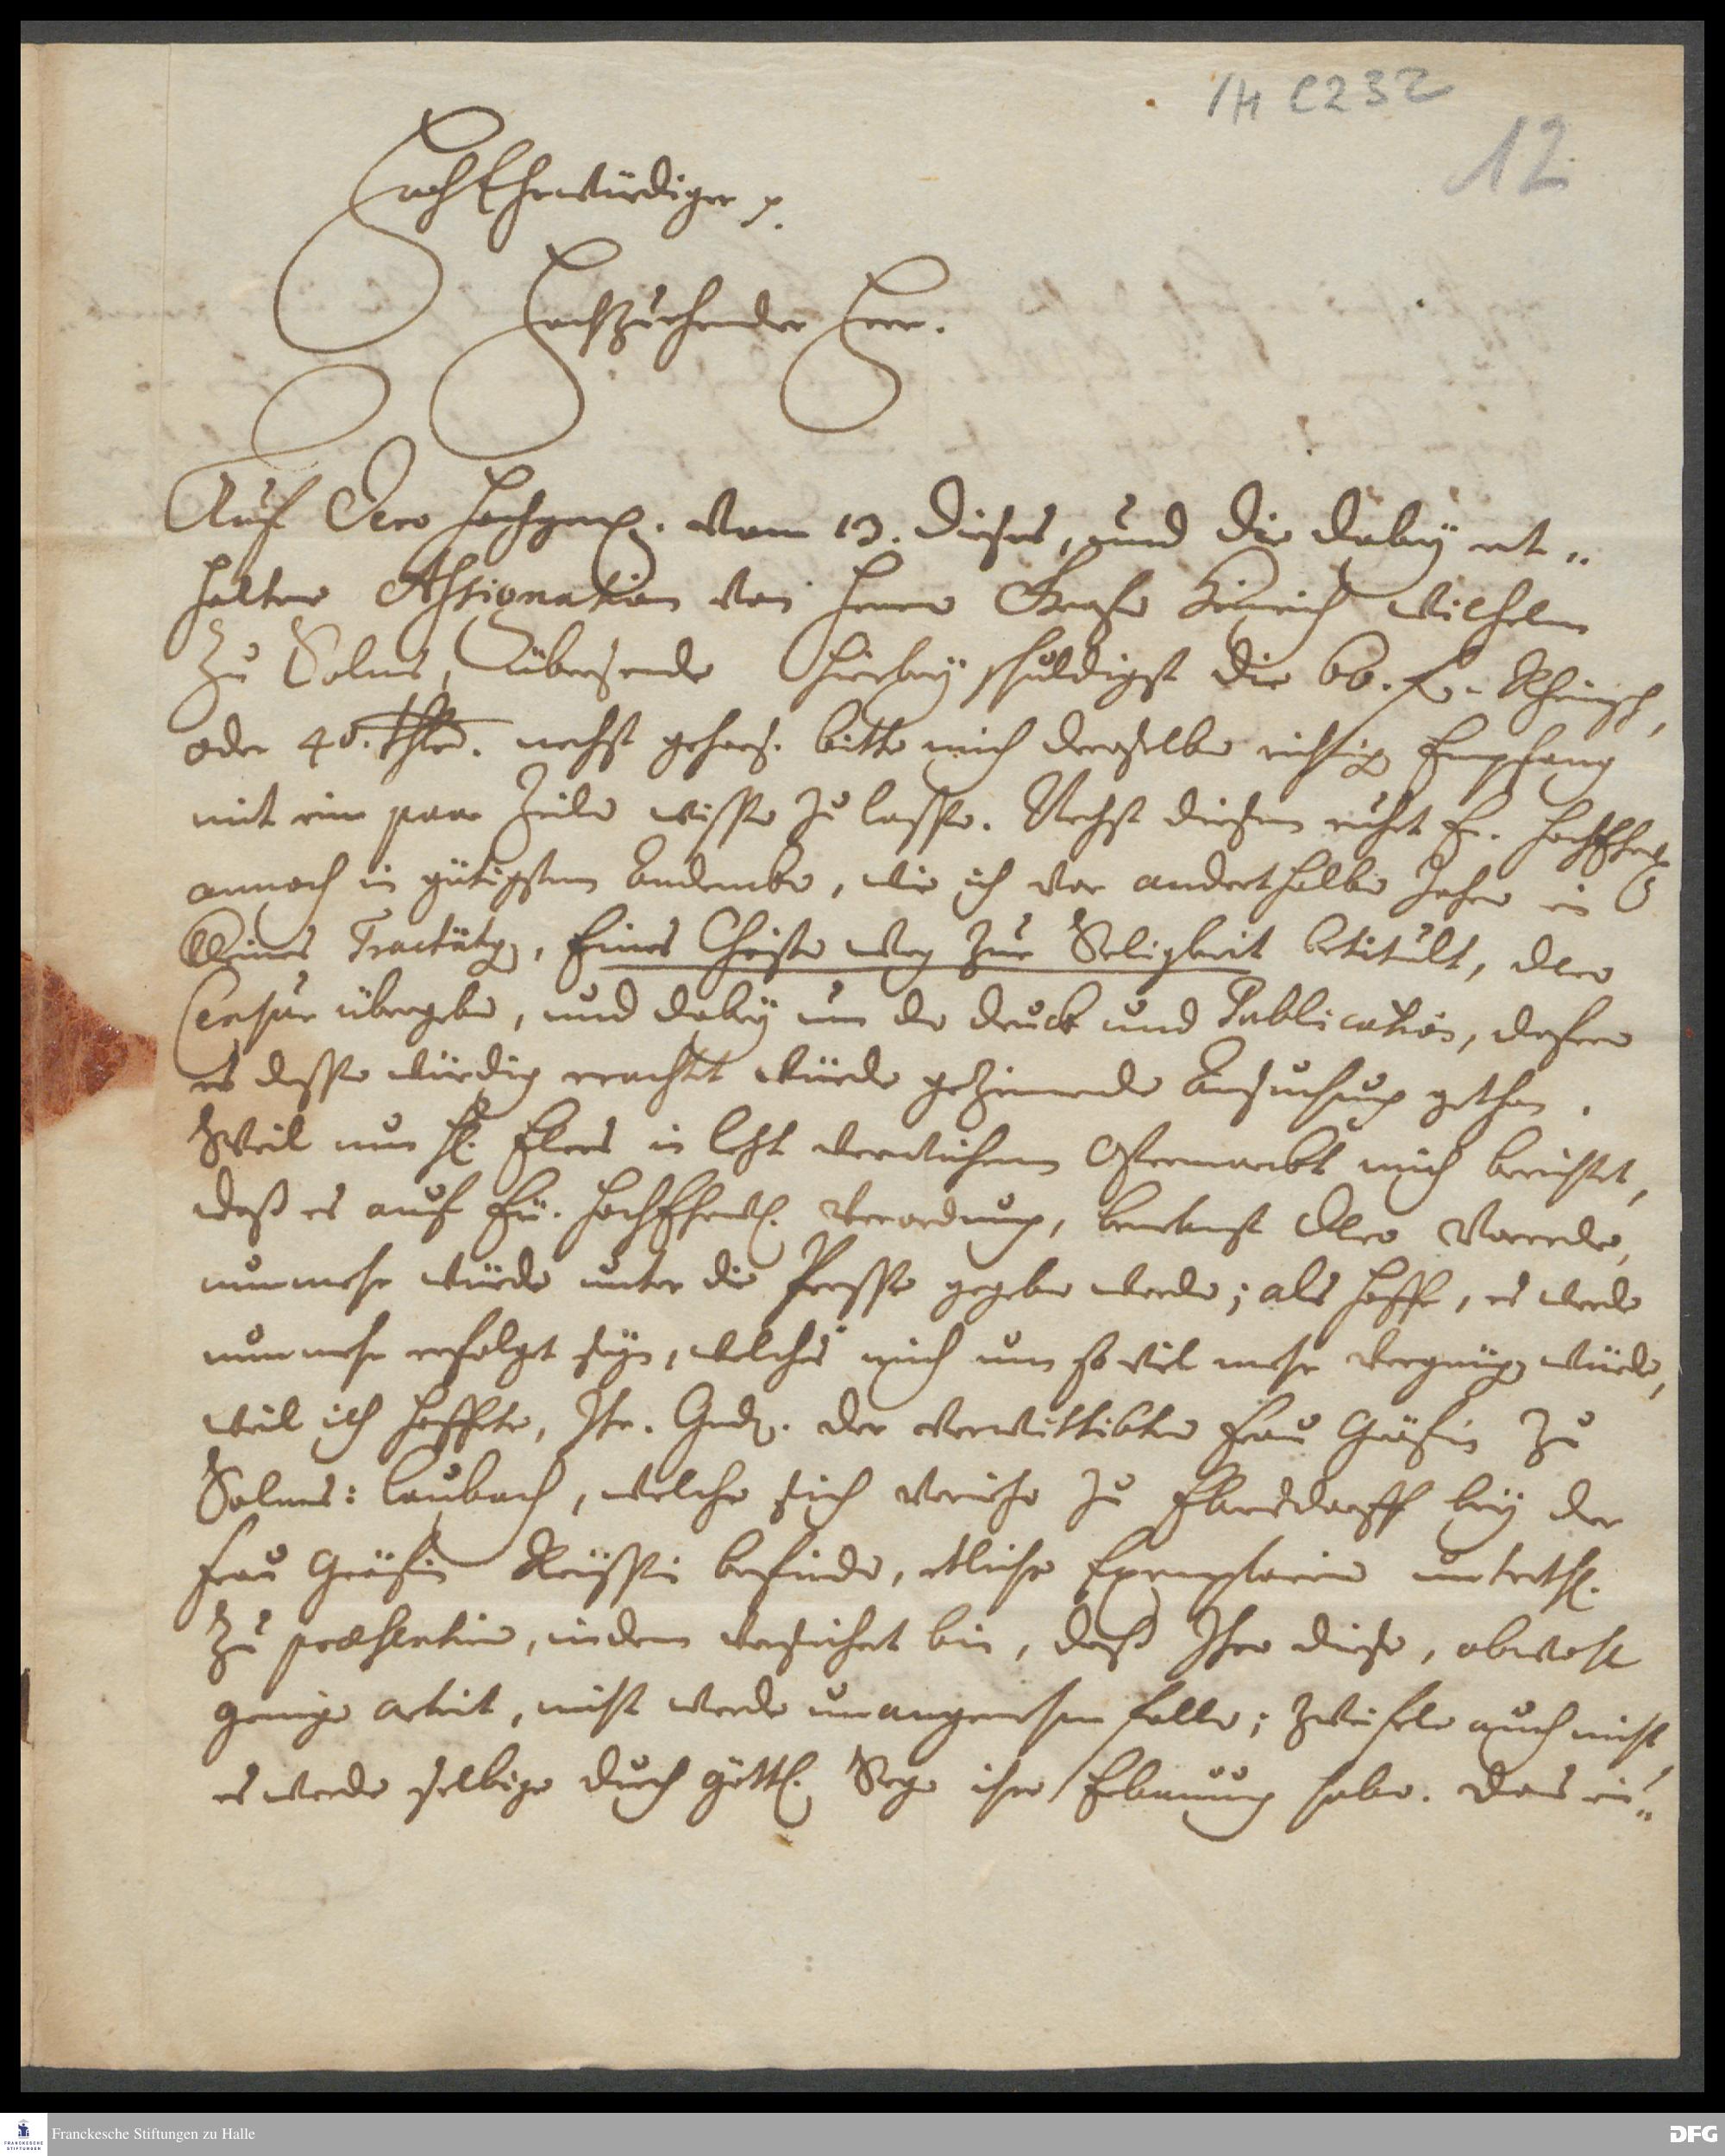 1H C232
12
HochEhrwürdiger p.
Hochzuehrender Herr.
Auf Dero hochgeneigtes. vom 13. dieses, und die dabey ent„
haltene Assignation von Herrn Grafen Heinrich Wilhelm
zu Solms, übersende hierbey schuldigst die 60. f. Rheinisch,
oder 40. Thlr. nechst gehors. bitte mich deroselben richtigen Empfang
mit ein paar Zeilen wissen zu lassen. Nechst diesem ruhet Ew. HochEhrw.
annoch in gütigstem Andencken, wie ich vor anderthalben Jahren ein
kleines Tractätgen, Eines Christen Weg zur Seligkeit betitult, dero
Censur übergeben, und dabey um den druck und Publication, dafern
es dessen würdig erachtet würde geziemende Ansuchung gethan.
Weil nun H. Elers in letzt verwichenem Ostermarckt mich berichtet,
daß es auf Eü. HochEhrw. Verordnung, benebenst dero Vorrede,
nunmehr würde unter die Presse gegeben werden; als hoffe, es werde
nunmehr erfolget seyn, welches mich um so viel mehr vergnügen würde,
weil ich hoffete, Ihr. Gnd. der verwittibten Frau Gräfin zu
Solms: Laubach, welche sich zu Ebersdorff bey der
Frau Gräfin Reüssin befinden, etliche Exemplarien unterth.
zu præsentiren, indem versichert bin, daß Ihro diese, obwohl
geringe arbeit, nicht werde unangenehm fallen; zweifele auch nicht,
es werde selbige durch göttl. Segen ihre Erbauung haben. Das ein„
Franckesche Stiftungen zu Halle
DFG